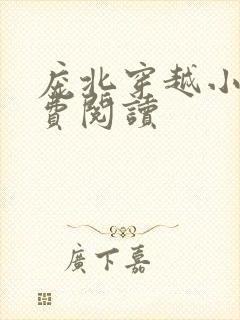 庇北穿越小
費閱讀
廣下嘉